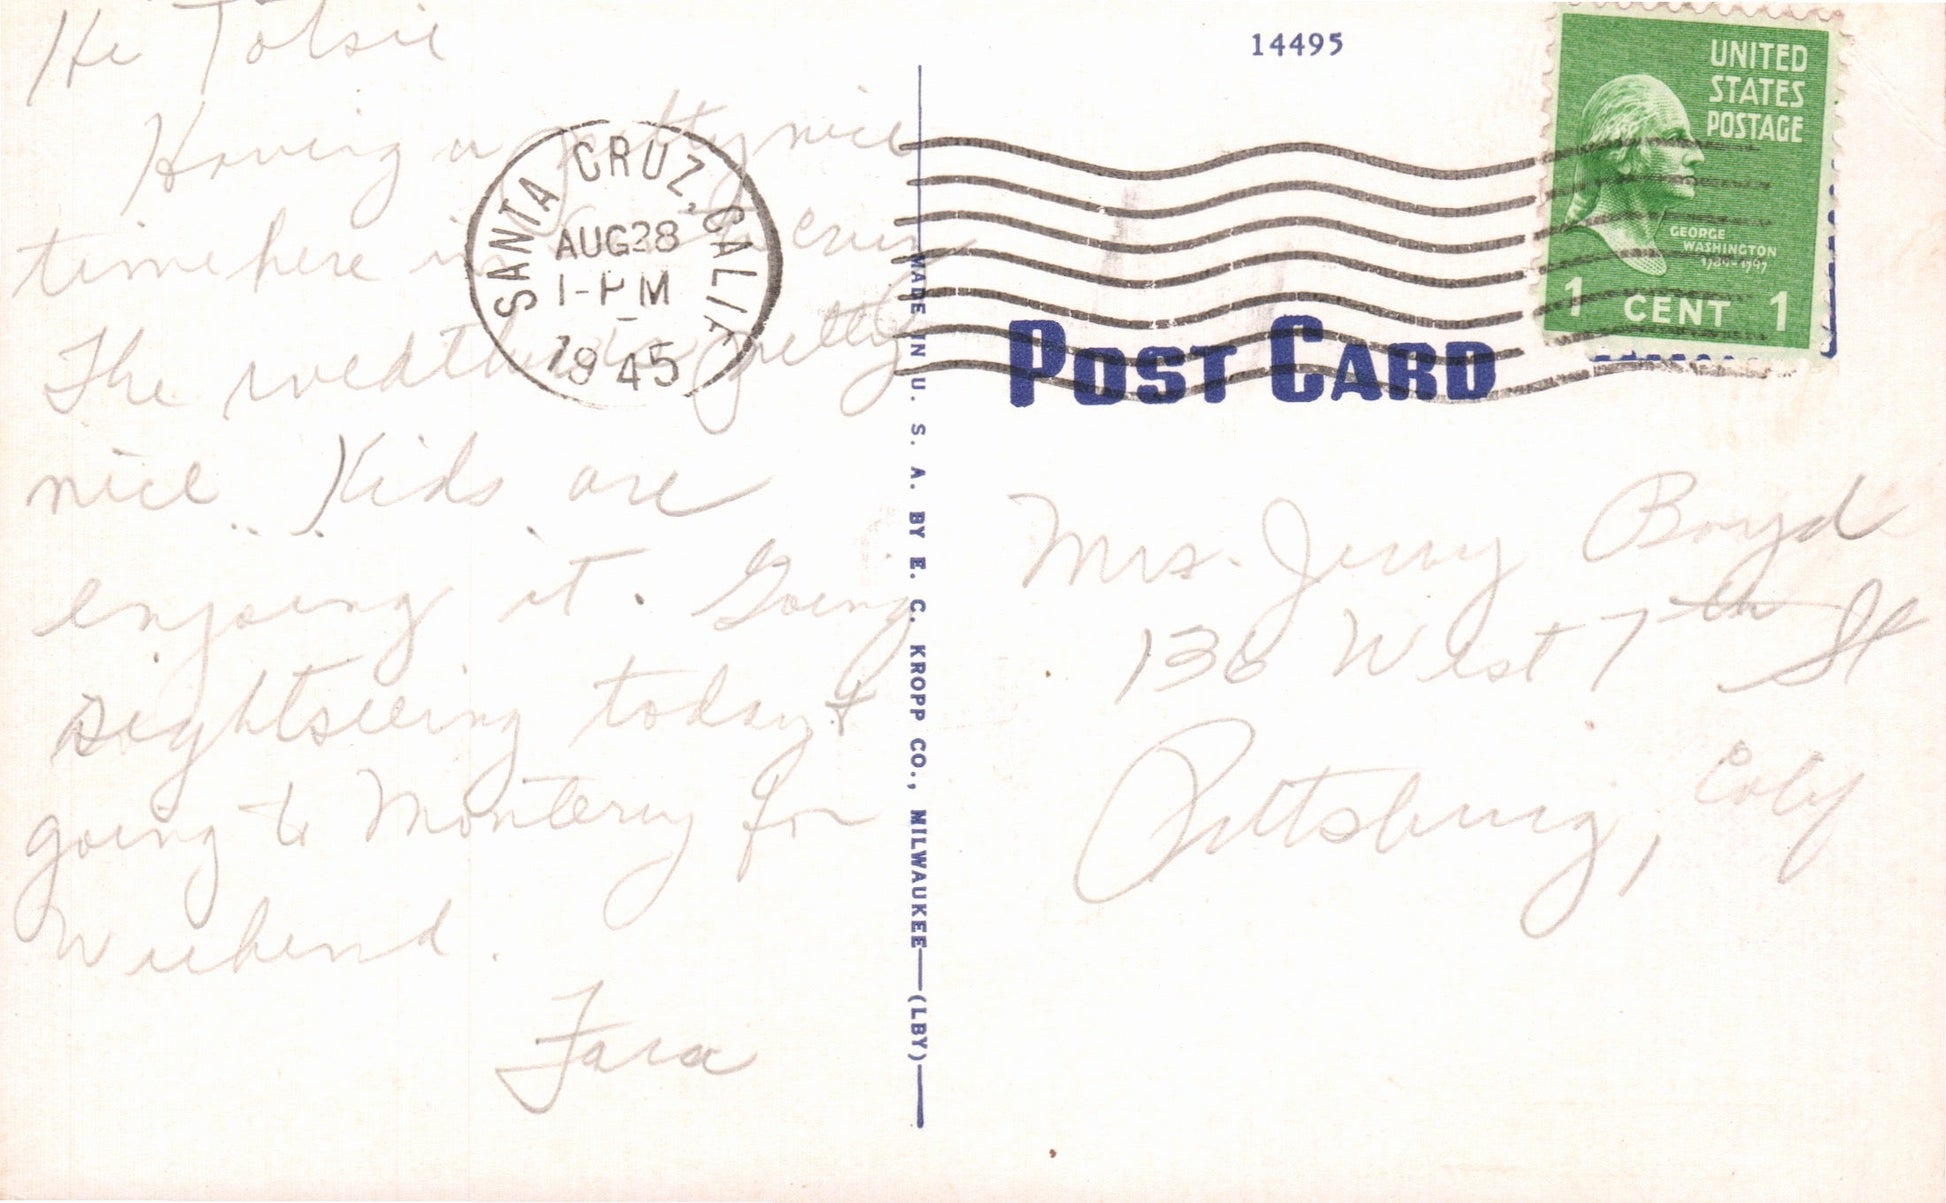 Hi Totsie
Having a pretty nice
time here in Santa Cruz
The weather is pretty
nice. Kids are
enjoing it. Going
sightseeing today &
going to Monterey for
Weekend.
Fara
SANTA CRUZ, CALIF.
AUG 28
1-PM
1945
14495
UNITED
STATES
POSTAGE
GEORGE
WASHINGTON
1789-1797
1 CENT 1
POST CARD
MADE IN U. S. A. BY E. C. KROPP CO., MILWAUKEE—(LBY)
Mrs. Jerry Boyd
136 West 7th St
Pittsburg, Calif